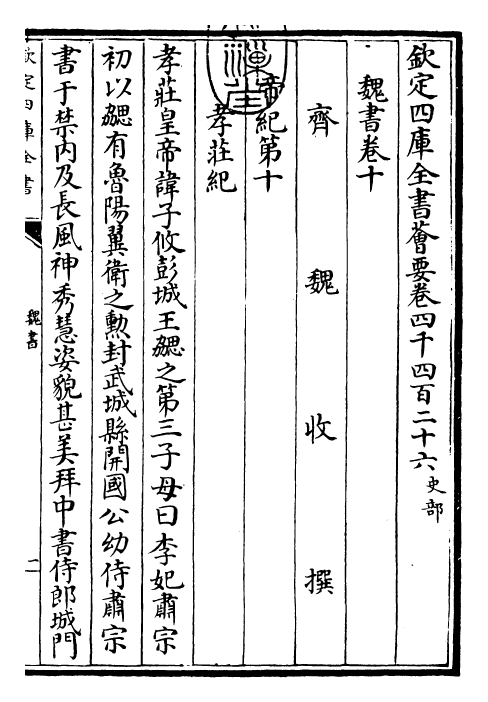 欽定四庫全書薈要卷四千四百二十六史部
魏書卷十
齊魏收撰
帝紀第十
孝莊紀
孝莊皇帝諱子攸彭城王勰之第三子母曰李妃肅宗
初以勰有魯陽翼衛之勲封武城縣開國公幼侍肅宗
書于禁內及長風神秀慧姿貌甚美拜中書侍郎城門
欽定四庫全書
魏書